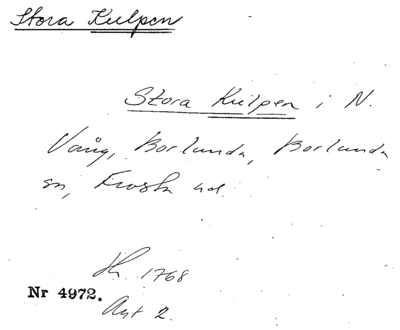 Stora Kulpen
Stora Kulpen i N.
Vång, Borlunda, Borlunda
sn, Frosta hd.
1768
Nr 4972.
Akt 2.